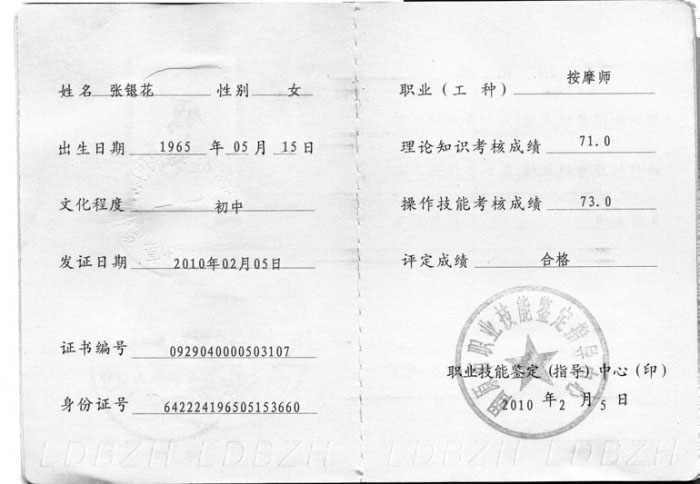 姓名 张银花 性别 女
出生日期 1965 年 05 月 15 日
文化程度 初中
发证日期 2010年02月05日
证书编号 0929040000503107
身份证号 642224196505153660
LDBZH LDBZH
职业(工 种) 按摩师
理论知识考核成绩 71.0
操作技能考核成绩 73.0
评定成绩 合格
职业技能鉴定指导中心
职业技能鉴定(指导)中心(印)
2010 年 2 月 5 日
LDBZH LDBZH